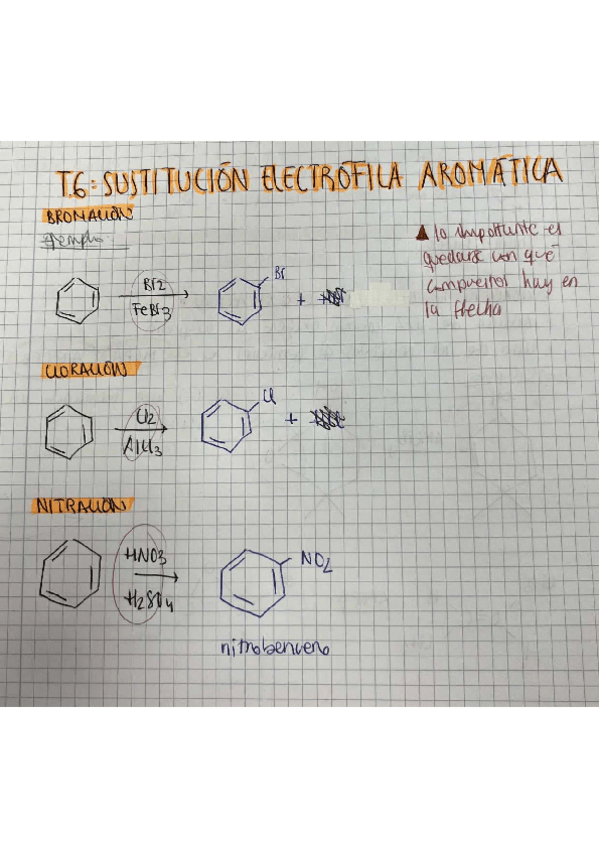 T.6: SUSTITUCIÓN ELECTRÓFILA AROMÁTICA
BROMACIÓN
Ejemplo:
▲ lo importante es
quedarse con qué
compuestos hay en
la flecha
Br2
FeBr3
Br
+
CLORACIÓN
Cl2
AlCl3
Cl
+
NITRACIÓN
HNO3
H2SO4
NO2
nitrobenceno